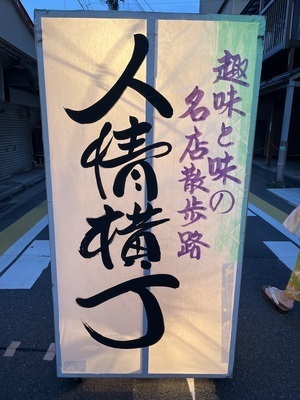 趣味と味の
名店散歩路
人情横丁